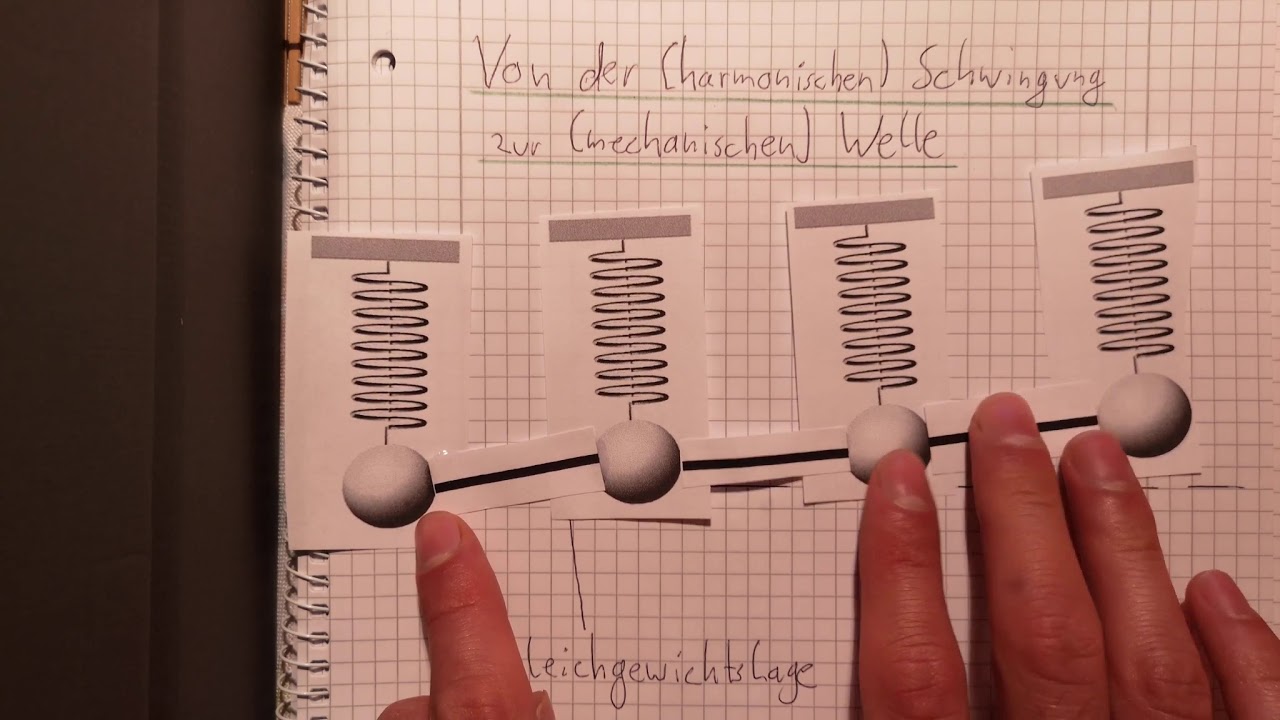 Von der (harmonischen) Schwingung
zur (mechanischen) Welle
leichgewichtslage